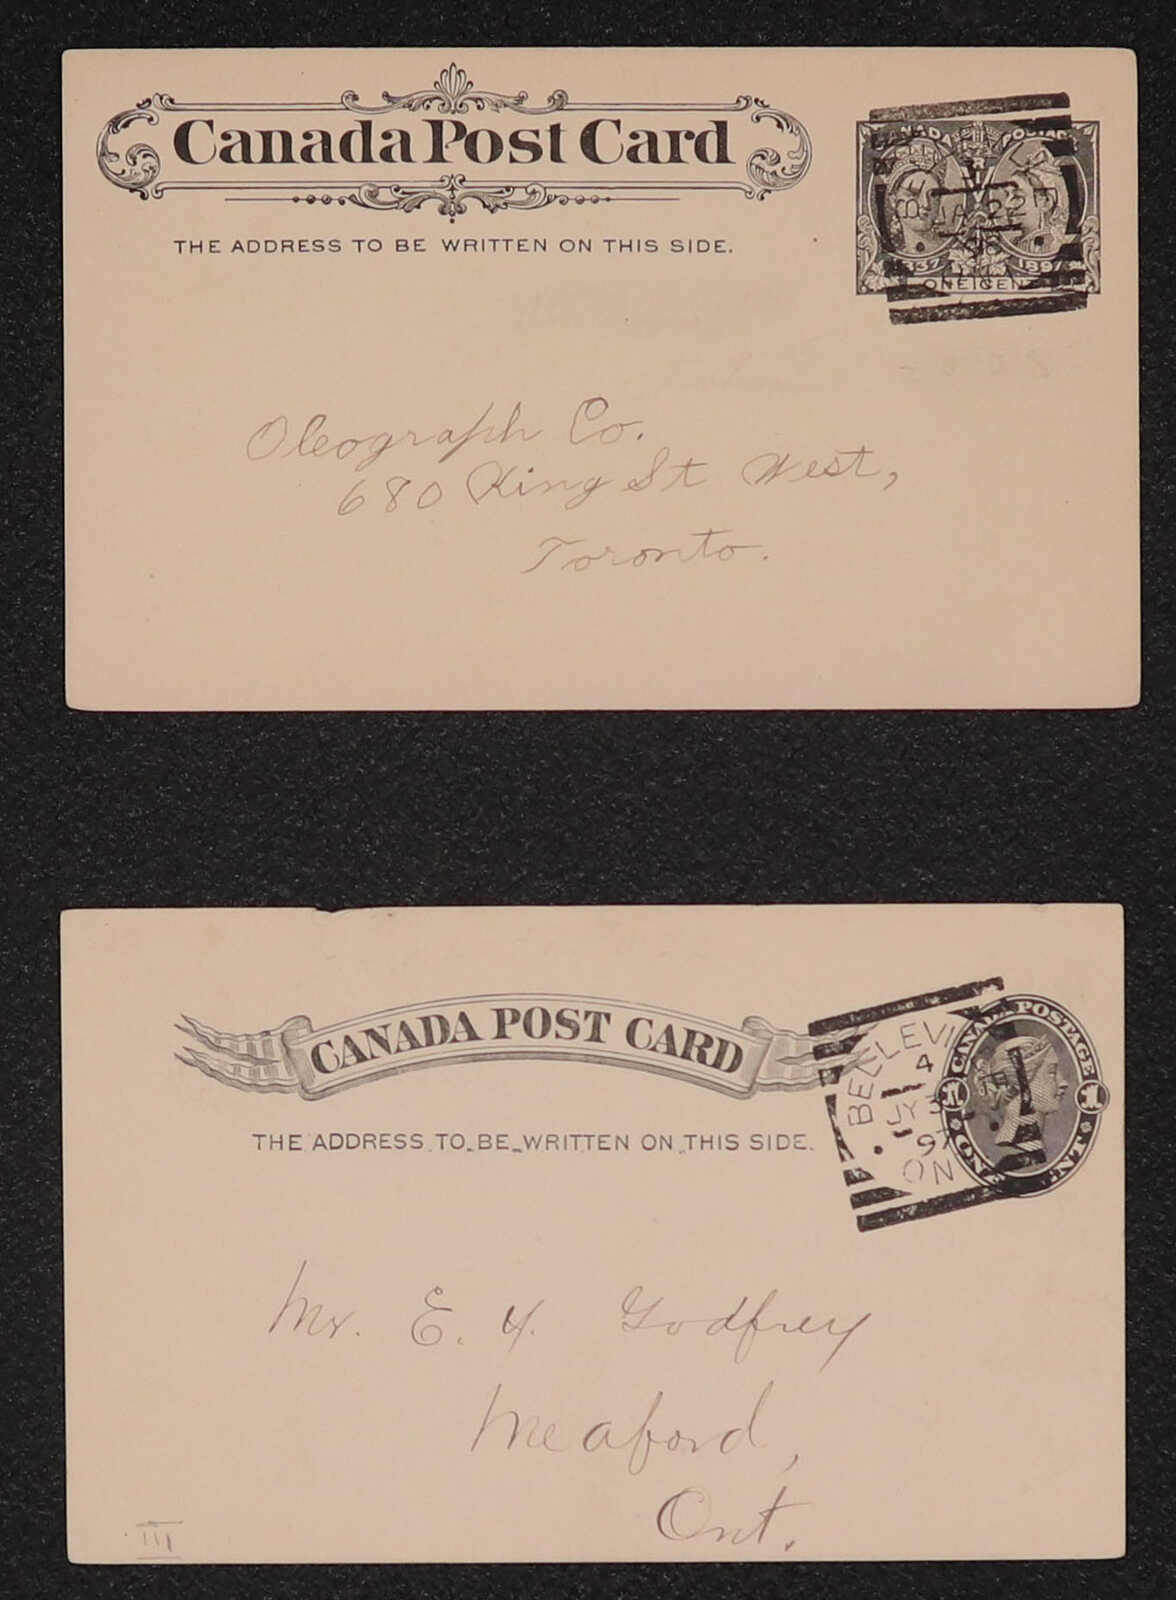 Canada Post Card
THE ADDRESS TO BE WRITTEN ON THIS SIDE.
CANADA POSTAGE
BELLEVILLE
JA 23
98
1837 1897
ONE CENT
Oleograph Co.
680 King St West,
Toronto.
CANADA POST CARD
THE ADDRESS TO BE WRITTEN ON THIS SIDE.
CANADA POSTAGE
1 1
ONE CENT
BELLEVILLE
4
JY 3
97
ONT
Mr. E. H. Godfrey
Meaford,
Ont.
III